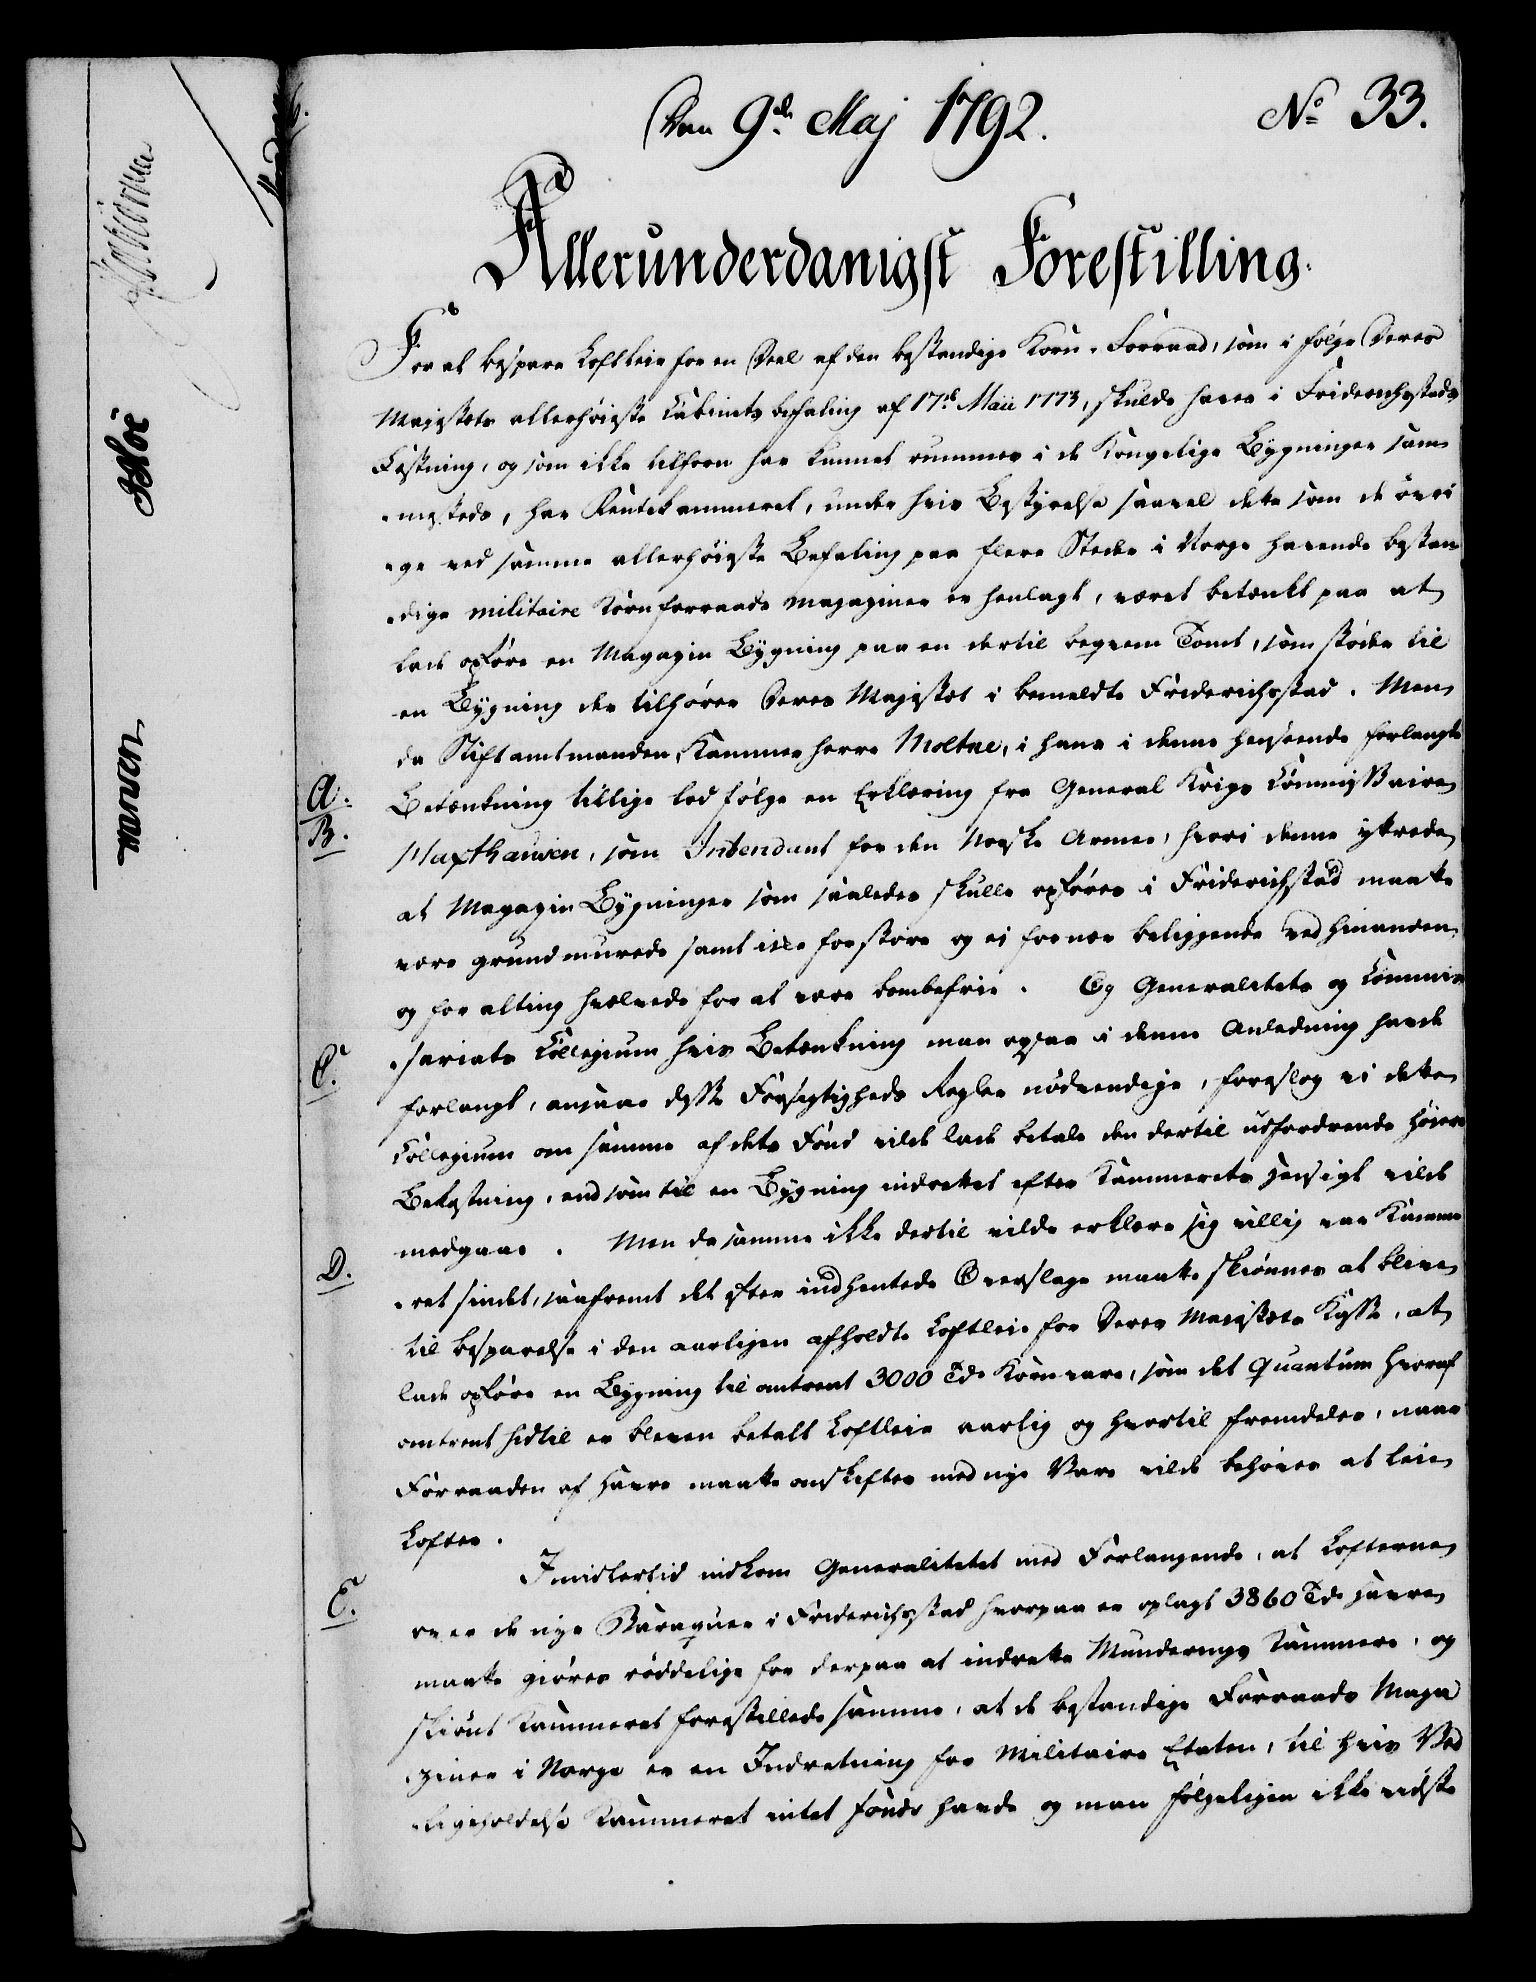 Den 9de Maj 1792.
No 33.
Allerunderdanigst Forestilling.
For at bespare Loftleie for en Deel af den bestandige Korn-Forraad, som i følge Deres
Majestets allerhøigste Cabinets befaling af 17de Maii 1773, skulde haves i Friderichsstads
Fæstning, og som ikke tilforn har kunnet rummes i de Kongelige Bygninger sam-
-mesteds, har Rentekammeret, under hvis Bestyrelse saavel dette som de övri-
-ge ved samme allerhöigste Befaling paa flere Steder i Norge havende bestan-
-dige militaire Kornforraads Magaziner er henlagt, været betænkt paa at
lade opføre en Magazin Bygning paa en dertil beqvem Tomt, som støder til
en Bygning der tilhører Deres Majestet i bemeldte Friderichsstad. Men
da Stiftamtmanden, Kammerherre Moltke, i hans i denne henseende forlangte
A. Betænkning tillige lod følge en Erklæring fra General Krigs Commissairen
B. Haxthausen, som Intendant for den Norske Armee, hvori denne yttrede
at Magazin Bygninger som saaledes skulle opføres i Friderichstad maatte
være grundmurede samt ikke for store og ei for nær beliggende ved hinanden
og for alting hvelvede for at være bombefrie. Og Generalitets og Commis-
C. -sariats Collegium hvis Betænkning man ogsaa i denne Anledning havde
forlangt, ansaae disse Forsigtigheds Regler nödvendige, foreslog vi dette
Collegium om samme af dets Fond vilde lade betale den dertil udfordrende höiere
Bekostning, end som til en Bygning indrettet efter Kammerets Hensigt vilde
medgaae. Men da samme ikke dertil vilde erklære sig villig var Kamme-
D. -ret sindet, saafremt det efter indhentede Overslage maatte skiønnes at blive
til besparelse i den aarligen afholdte Loftleie for Deres Majestets Kasse, at
lade opføre en Bygning til omtrent 3000 Tdr Kornvare, som det Quantum hvoraf
omtrent hidtil er bleven betalt Loftleie aarlig og hvortil fremdeles, naar
Forraaden af Havre maatte omskiftes med nye Vare vilde behøves at leie
Lofter.
Imidlertid indkom Generalitetet med Forlangende, at Lofterne
E. over de nye Baraquer i Friderichsstad hvorpaa er oplagt 3860 Tdr Havre
maatte giöres röddelige for derpaa at indrette Munderings Kammere, og
skiönt Kammeret forestillede samme, at de bestandige Forraads Maga-
-ziner i Norge er en Indretning for Militaire Etaten, til hvis Ved-
-ligeholdelse Kammeret intet Fonds havde og man følgeligen ikke vidste